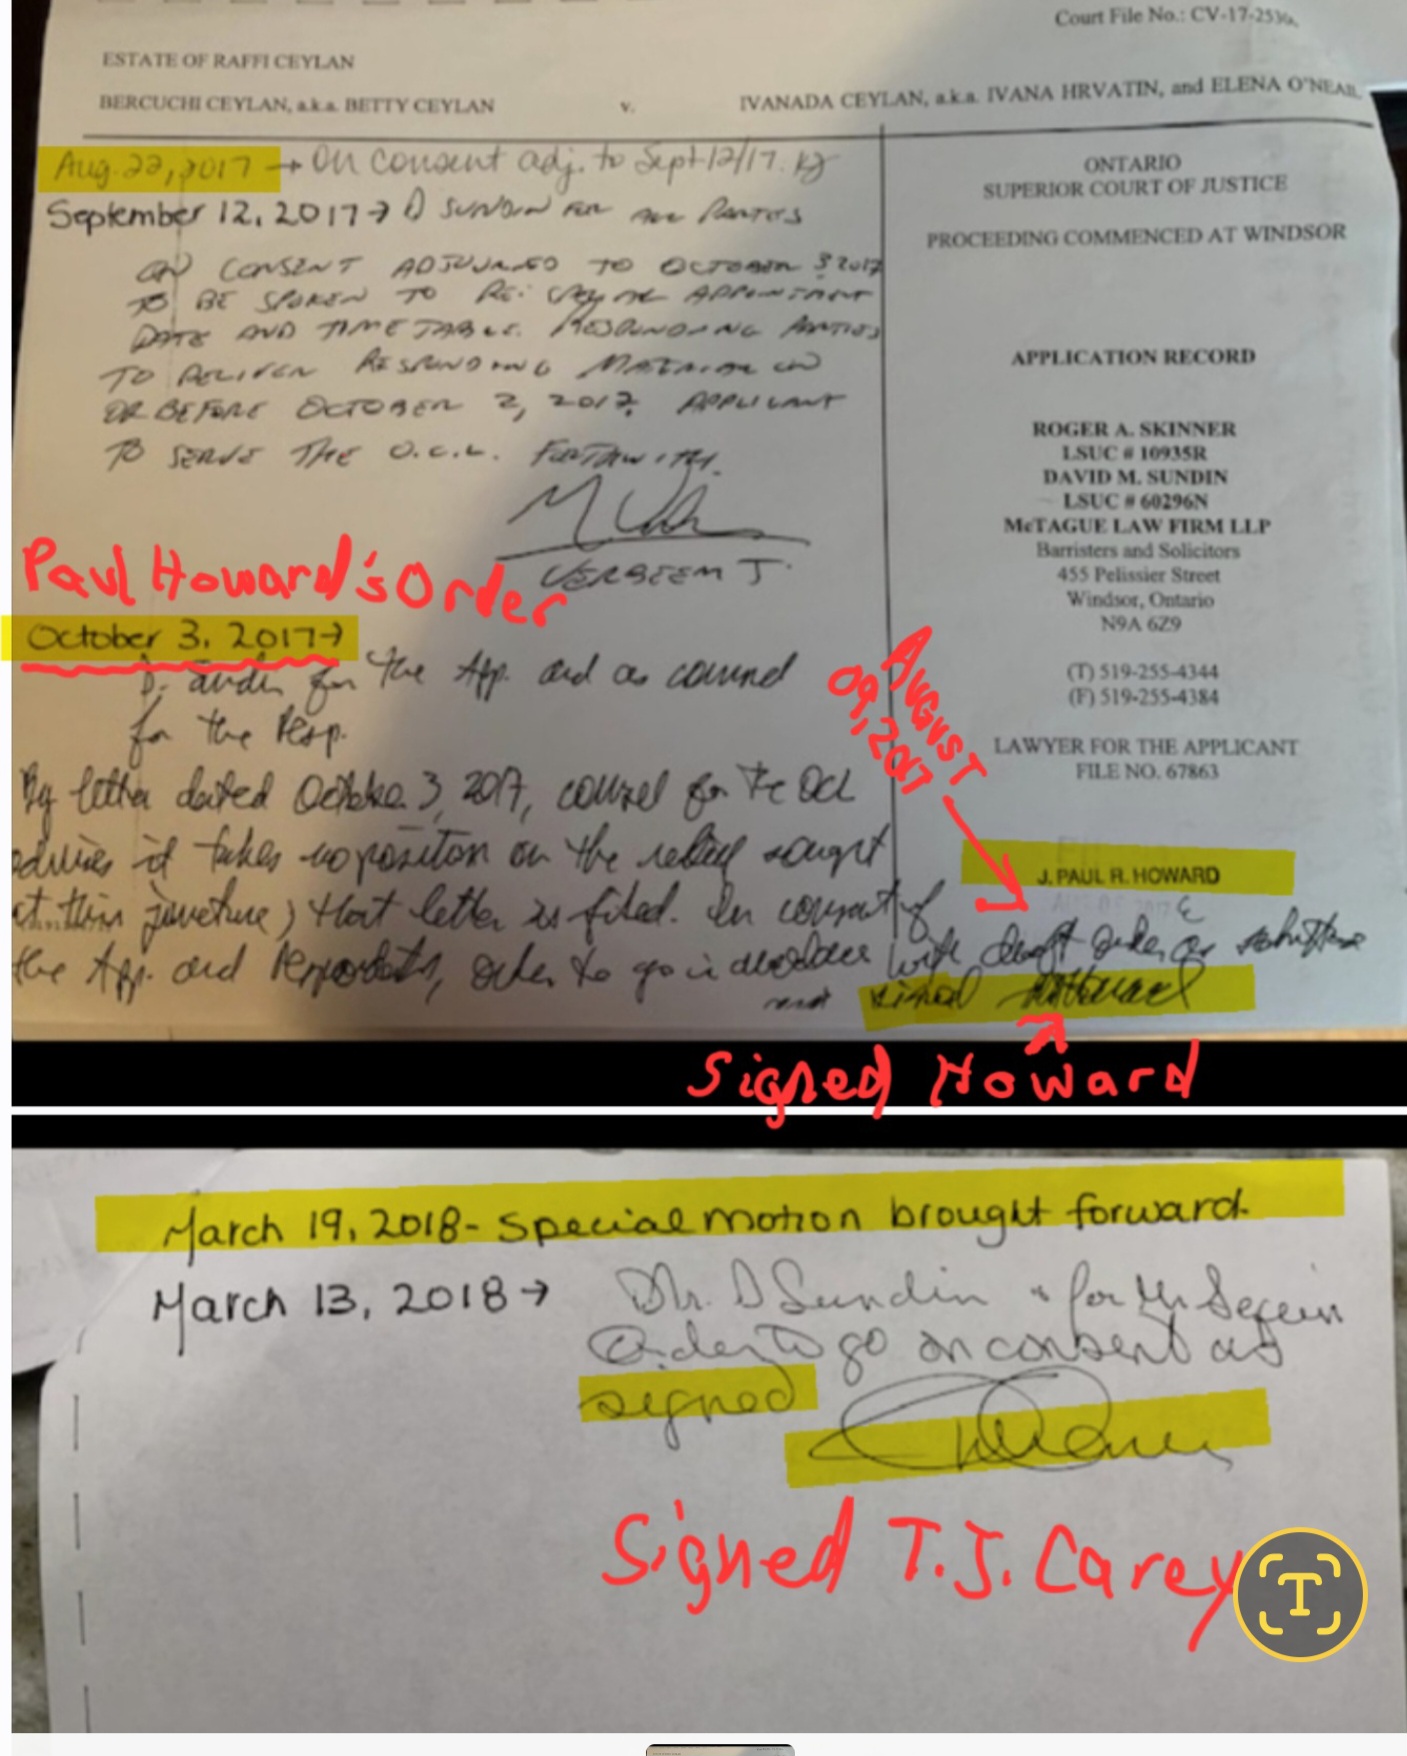 Court File No.: CV-17-2530
ESTATE OF RAFFI CEYLAN
BERCUCHI CEYLAN, a.k.a. BETTY CEYLAN v. IVANADA CEYLAN, a.k.a. IVANA HRVATIN, and ELENA O'NEAIL
Aug. 22, 2017 → On consent adj. to Sept 12/17.
September 12, 2017 → D SUNDIN FOR ALL PARTIES
ON CONSENT ADJOURNED TO OCTOBER 3 2017
TO BE SPOKEN TO RE: SPECIAL APPOINTMENT
DATE AND TIMETABLE. RESPONDING PARTIES
TO DELIVER RESPONDING MATERIAL ON
OR BEFORE OCTOBER 2, 2017. APPLICANT
TO SERVE THE O.C.L. FORTHWITH.
VERBEEM J.
Paul Howard's Order
October 3, 2017 →
D. for the App. and as counsel
for the Resp.
By letter dated October 3, 2017, counsel for the OCL
advises it takes no position on the relief sought
at this juncture; that letter is filed. On consent of
the App. and Respondents, order to go in accordance with draft order as
and signed
ONTARIO
SUPERIOR COURT OF JUSTICE
PROCEEDING COMMENCED AT WINDSOR
APPLICATION RECORD
ROGER A. SKINNER
LSUC # 10935R
DAVID M. SUNDIN
LSUC # 60296N
McTAGUE LAW FIRM LLP
Barristers and Solicitors
455 Pelissier Street
Windsor, Ontario
N9A 6Z9
(T) 519-255-4344
(F) 519-255-4384
LAWYER FOR THE APPLICANT
FILE NO. 67863
AUGUST
09, 2017
J. PAUL R. HOWARD
Signed Howard
March 19, 2018 - special motion brought forward.
March 13, 2018 → Mr. D Sundin + for Mr
Order to go on consent as
signed
Signed T.J. Carey